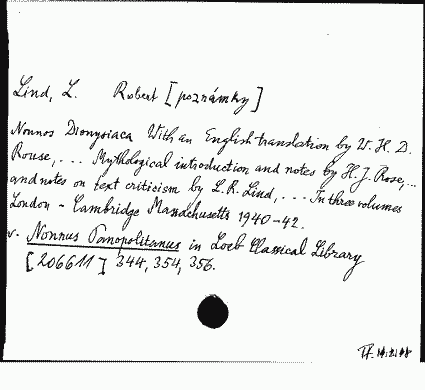 Lind, L. Robert [poznámky]
Nonnos Dionysiaca With an English translation by W. H. D.
Rouse, ... Mythological introduction and notes by H. J. Rose, ...
and notes on text criticism by L. R. Lind, ... In three volumes
London - Cambridge Massachusetts 1940-42.
v. Nonnus Panopolitanus in Loeb Classical Library
[206611] 344, 354, 356.